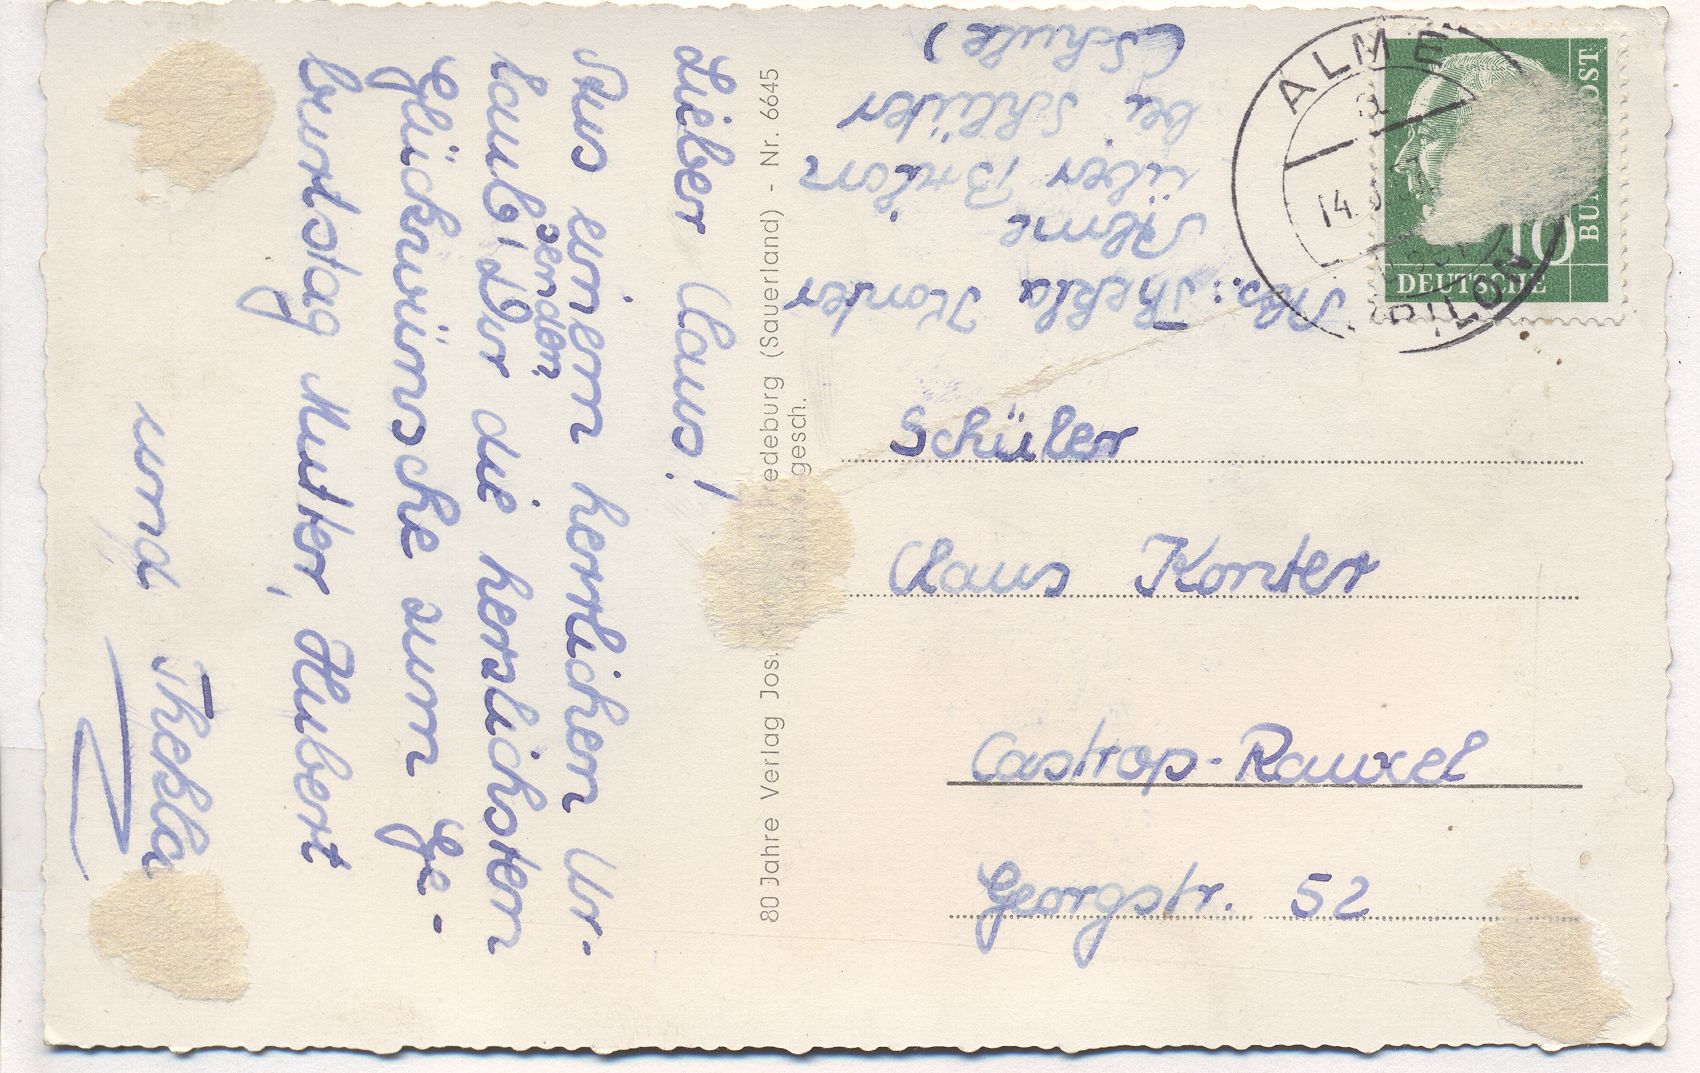 Lieber Claus!
Aus einem herrlichen Ur-
laub senden
Dir die herzlichsten
Glückwünsche zum Ge-
burtstag Mutter, Hubert
und Thekla
80 Jahre Verlag Jos. edeburg (Sauerland) - Nr. 6645
gesch.
Abs.: Thekla Konter
Alme
über Brilon
bei Schlüter
(Schule)
ALME
a
14.
BRILON
10
DEUTSCHE
BUN POST
Schüler
Claus Konter
Castrop-Rauxel
Georgstr. 52